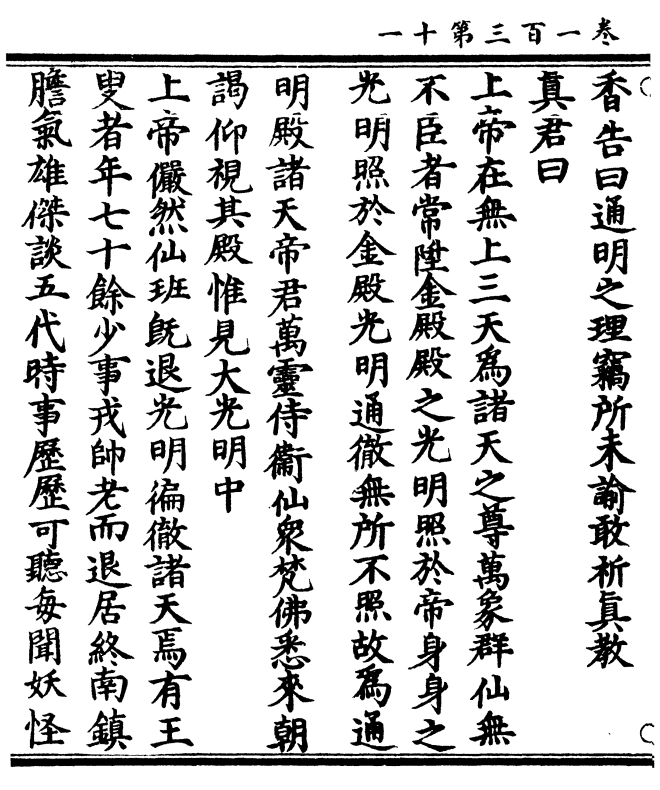 卷一百三第十一
香告曰通明之理竊所未諭敢祈眞教
眞君曰
上帝在無上三天爲諸天之尊萬象群仙無
不臣者常陞金殿殿之光明照於帝身身之
光明照於金殿光明通徹無所不照故爲通
明殿諸天帝君萬靈侍衞仙衆梵佛悉來朝
謁仰視其殿惟見大光明中
上帝儼然仙班旣退光明徧徹諸天焉有王
叟者年七十餘少事戎帥老而退居終南鎮
膽氣雄傑談五代時事歷歷可聽每聞妖怪